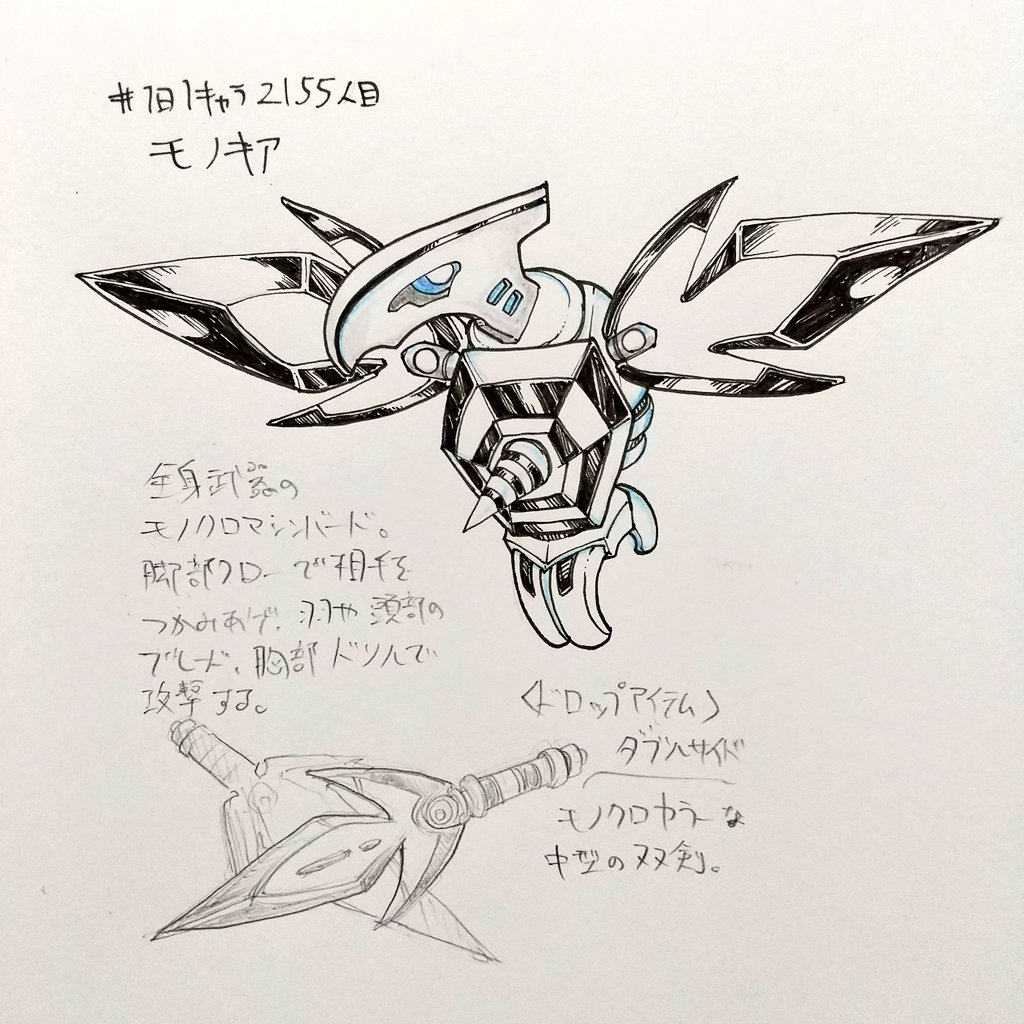 #1日1キャラ2155人目
モノキア
全身武器の
モノクロマシンバード。
脚部クローで相手を
つかみあげ、羽や頭部の
ブレード、胸部ドリルで
攻撃する。
〈ドロップアイテム〉
ダブルサイド
モノクロカラーな
中型の双剣。